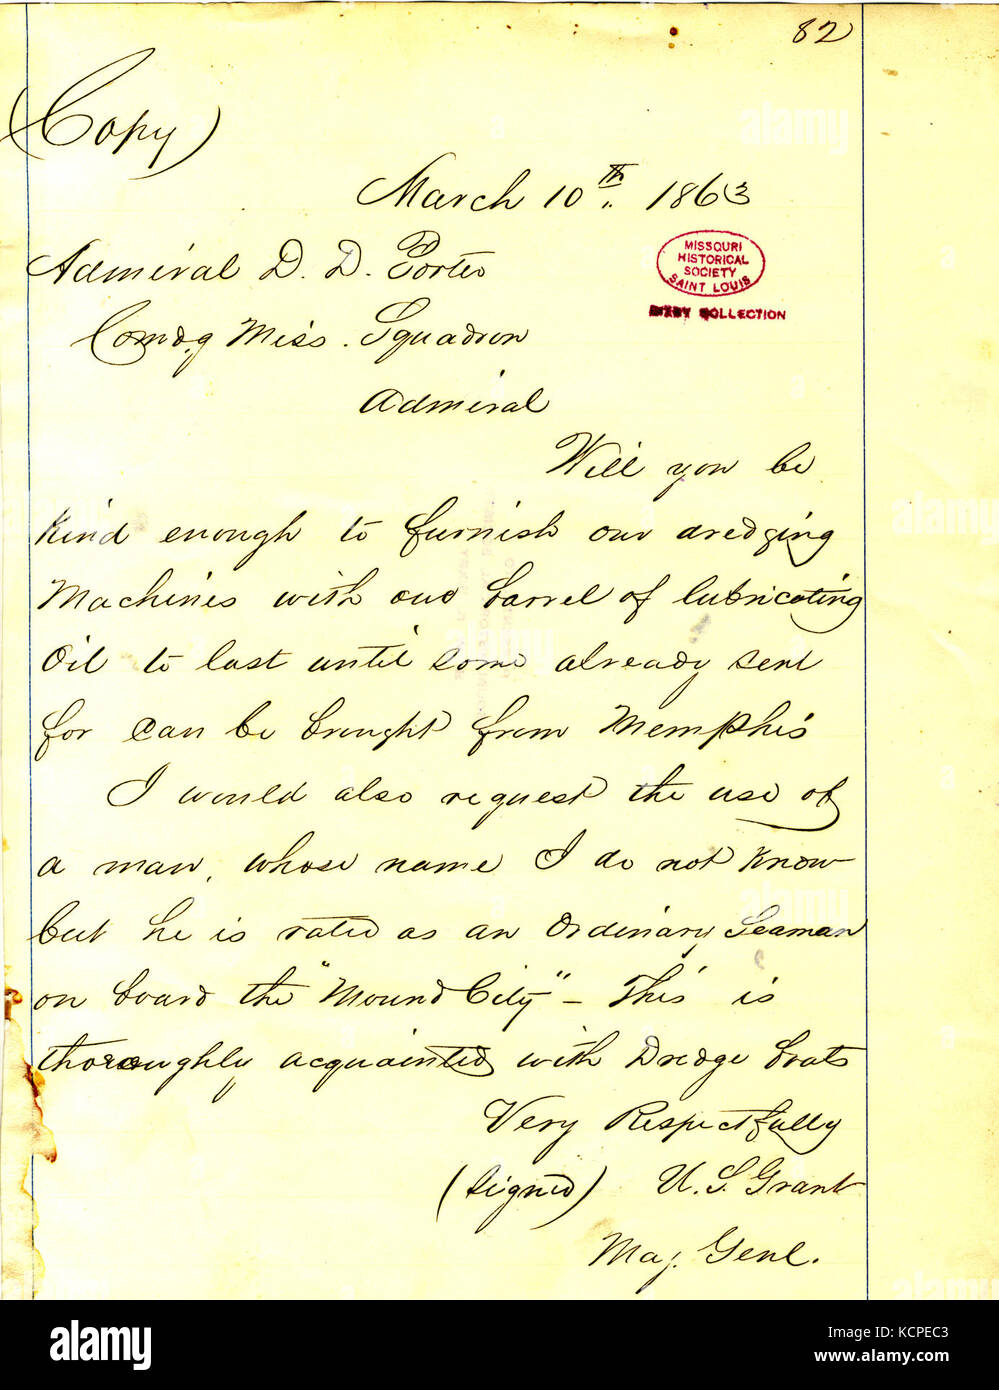 82
(Copy)
March 10th. 1863
Admiral D. D. Porter
Comdg Miss. Squadron
Admiral
MISSOURI
HISTORICAL
SOCIETY
SAINT LOUIS
COLLECTION
Will you be
Kind enough to furnish our dredging
Machines with one barrel of lubricating
Oil to last until some already sent
for can be brought from Memphis
I would also request the use of
a man, whose name I do not know
but he is rated as an Ordinary Seaman
on board the "Mound City" – This is
thoroughly acquainted with Dredge boats
Very Respectfully
(Signed) U. S. Grant
Maj. Genl.
alamy
Image ID: KCPEC3
www.alamy.com